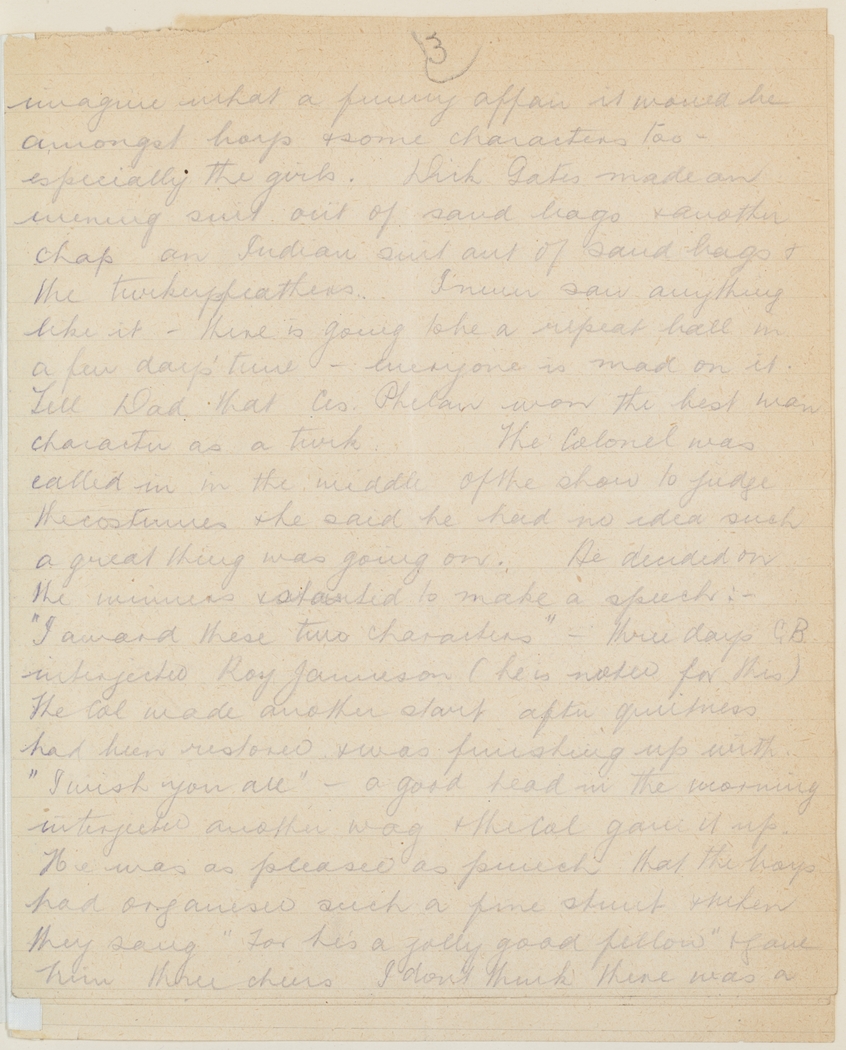 3
imagine what a funny affair it would be
amongst boys & some characters too -
especially the girls. Dick Gates made an
evening suit out of sand bags & another
chap an Indian suit out of sand bags &
the turkey feathers. I never saw anything
like it - there is going to be a repeat ball in
a few days' time - everyone is mad on it.
Tell Dad that Cis. Phelan won the best man
character as a turk. The Colonel was
called in in the middle of the show to judge
the costumes & he said he had no idea such
a great thing was going on. He decided on
the winners & started to make a speech:-
"I award these two characters" - three days C.B.
interjected Roy Jamieson (he is noted for this)
The Col made another start after quietness
had been restored & was finishing up with -
"I wish you all" - a good head in the morning
interjected another wag & the Col gave it up.
He was as pleased as punch that the boys
had organised such a fine stunt & when
they sang "For he's a jolly good fellow" & gave
him three cheers I don't think there was a